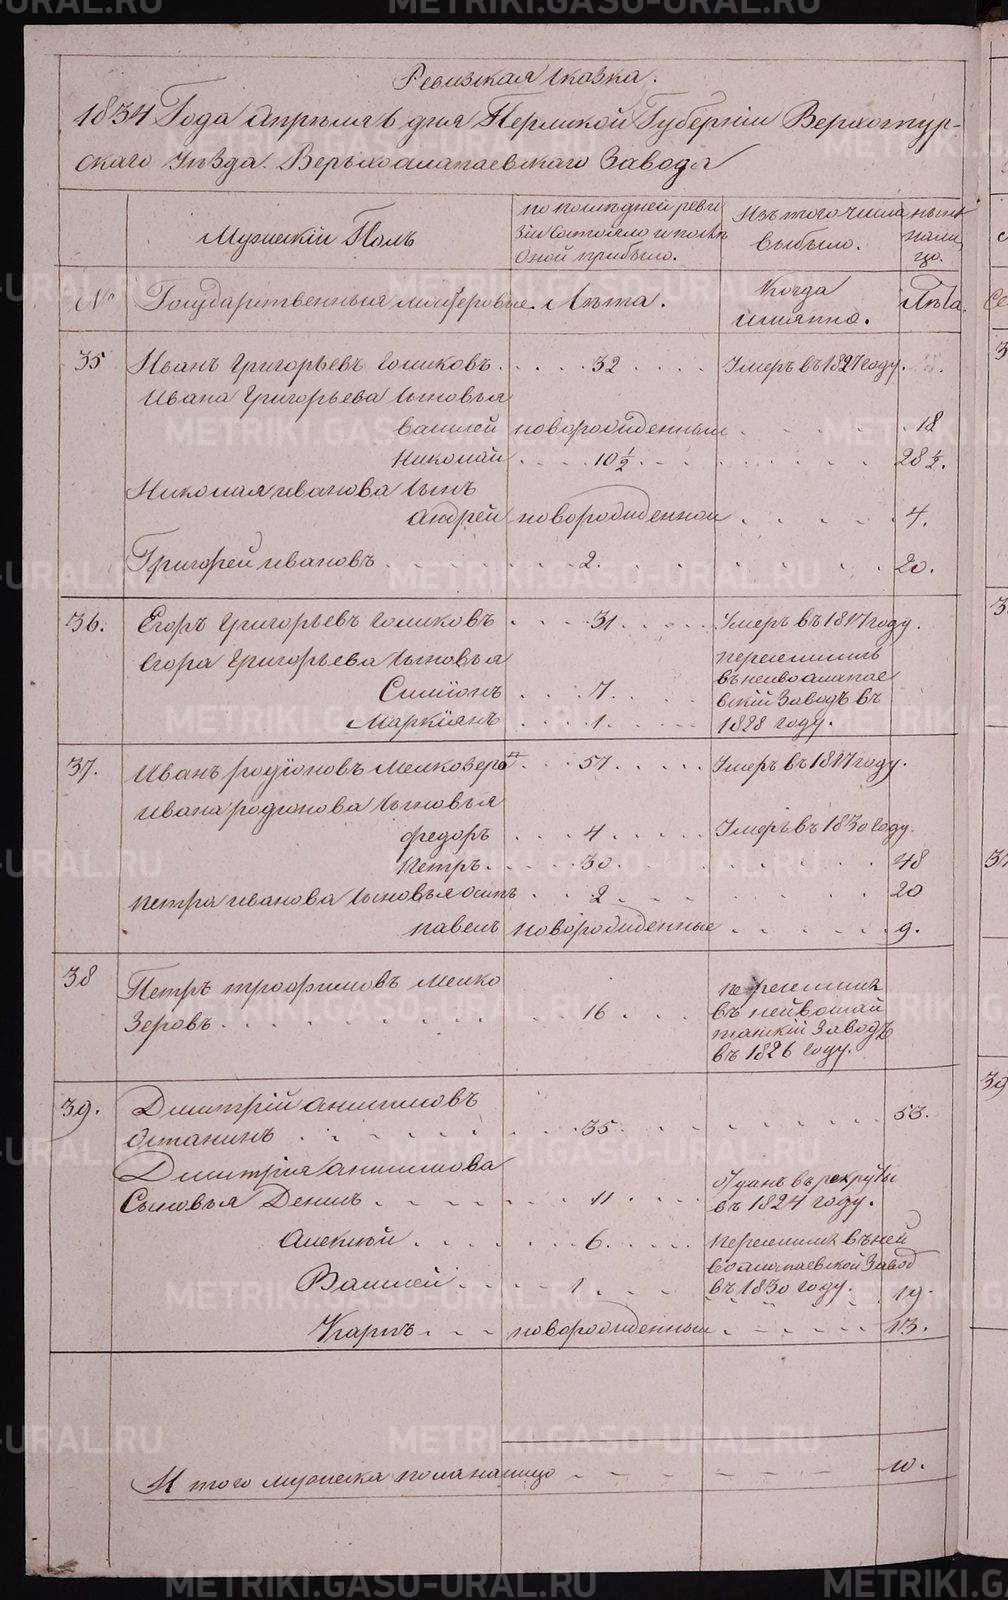 Ревизская сказка.
1834 Года Апреля 6 дня Пермской Губернiи Верхотур-
скаго Уѣзда. Верьхоалапаевскаго Завода
Мужескiй Полъ
по последней реви
зiи состояло и послѣ
оной прибыло.
Изъ того числа
выбыло.
нынѣ
нали
цо.
№
Государственныя мастеровые.
Лѣта.
Когда
имянно.
Лѣта.
35 Иванъ Григорьевъ Голиковъ. 32 Умеръ въ 1827 году.
Ивана Григорьева сыновья
Василей новорожденный 18
Николай 10 ½ 28 ½.
Николая иванова сынъ
Андрей новорожденной 4.
Григорей ивановъ 2. 20.
36. Егоръ Григорьевъ Голиковъ 31 Умеръ въ 1817 году.
Егора Григорьева сыновья
Симiонъ 7.
Маркiянъ 1.
переселились
въ нейвоалапае
вскiй Заводъ въ
1828 году.
37. Иванъ родiоновъ Мелкозеровъ 57 Умеръ въ 1817 году.
ивана родионова сыновья
федоръ 4 Умеръ въ 1830 году.
Петръ. 30. 48
петра иванова сыновья осипъ 2 20
павелъ новорожденные 9.
38 Петръ трофимовъ мелко
Зеровъ. 16
переселился
въ нейвошай
танскiй Заводъ
въ 1826 году.
39. Дмитрiй анисимовъ
Останинъ 35. 53.
Дмитрiя анисимова
Сыновья Денисъ 11
отданъ въ рекруты
въ 1824 году.
Алексѣй 6.
переселился въ ней
воалапаевской Завод
въ 1830 году.
Василей 1 19.
Карпъ новорожденный 13.
И того мужеска пола налицо 10.
METRIKI.GASO-URAL.RU